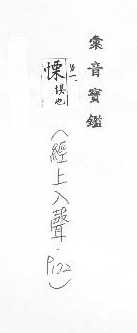 彙音寶鑑
慄 懼也
(經上入聲.P122)